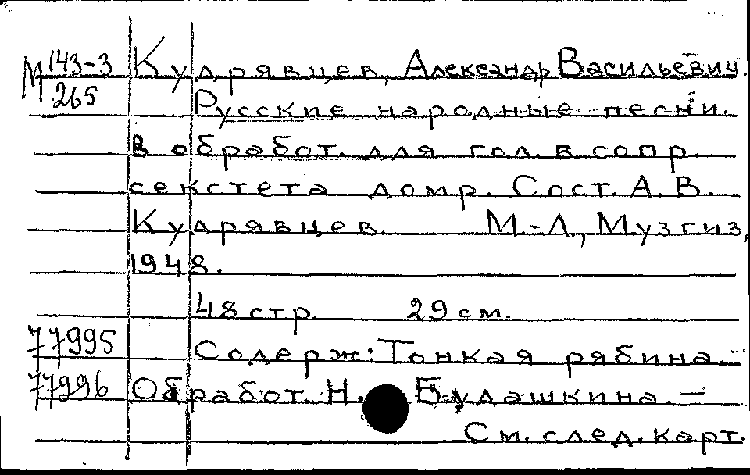 М 143-3 Кудрявцев, Александр Васильевич.
265 Русские народные песни.
в обработ. для гол. в сопр.
секстета домр. Сост. А. В.
Кудрявцев. М.-Л., Музгиз,
1948.
48 стр. 29 см.
77995 Содерж: Тонкая рябина.-
77996 Обработ. Н. Булашкина. —
См. след. карт.